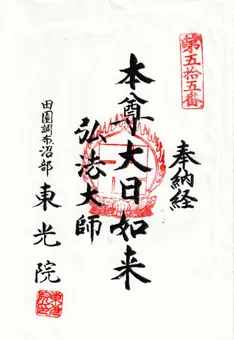 第五拾五番
奉納経
本尊大日如来
弘法大師
田園調布沼部
東光院